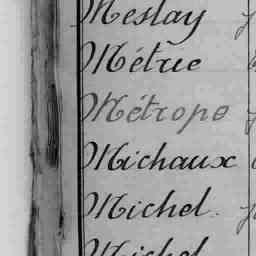 Meslay
Métrie
Métrope
Michaux
Michel.
Michel